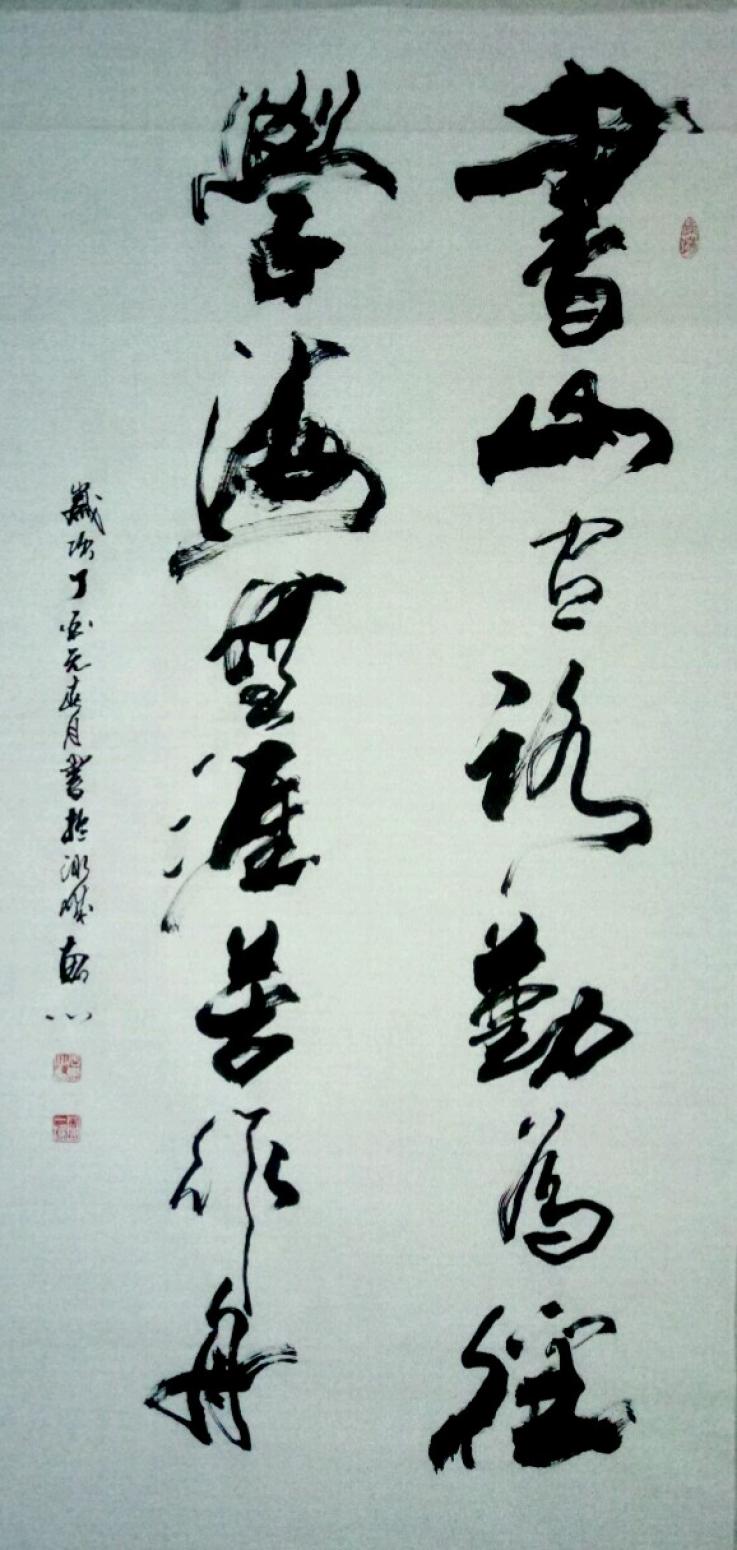 書山有路勤為徑
學海無涯苦作舟
歲次丁酉元春月書於冰城